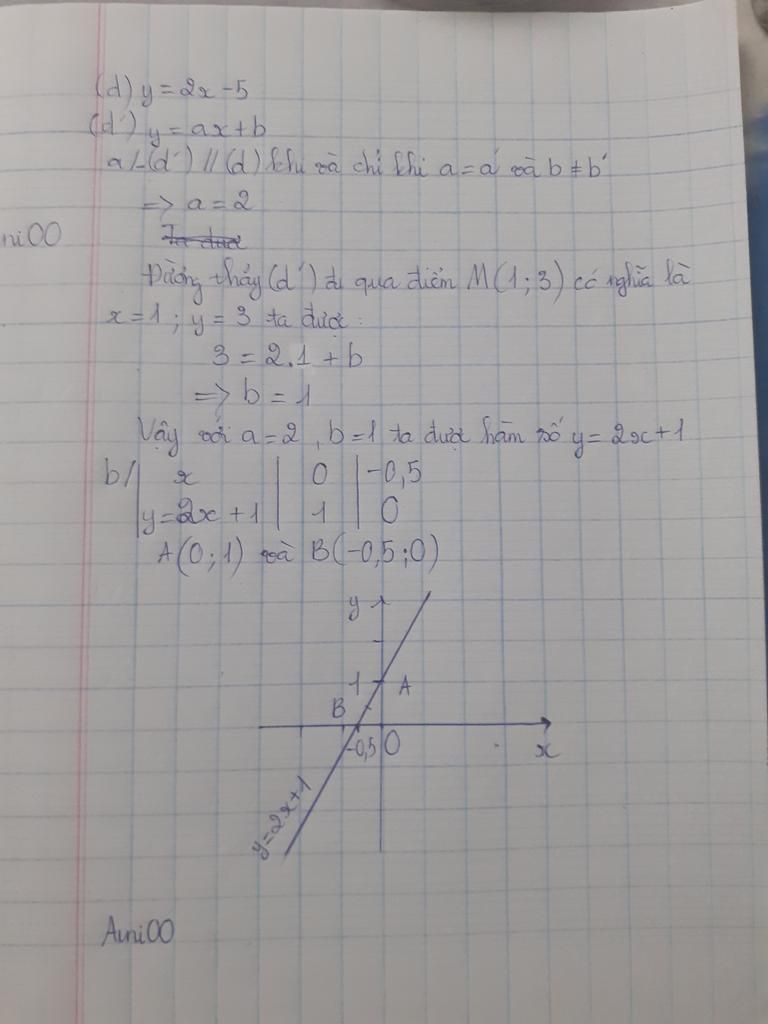 (d) y = 2x - 5
(d') y = ax + b
a/ (d') // (d) khi và chỉ khi a = a' và b ≠ b'
=> a = 2
ni00
Ta được
Đường thẳng (d') đi qua điểm M(1; 3) có nghĩa là
x = 1 ; y = 3 ta được :
3 = 2.1 + b
=> b = 1
Vậy với a = 2 , b = 1 ta được hàm số y = 2x + 1
b/ x | 0 | -0,5
y = 2x + 1 | 1 | 0
A(0; 1) và B(-0,5; 0)
y
1 A
B
-0,5 O
x
y = 2x + 1
Auni00